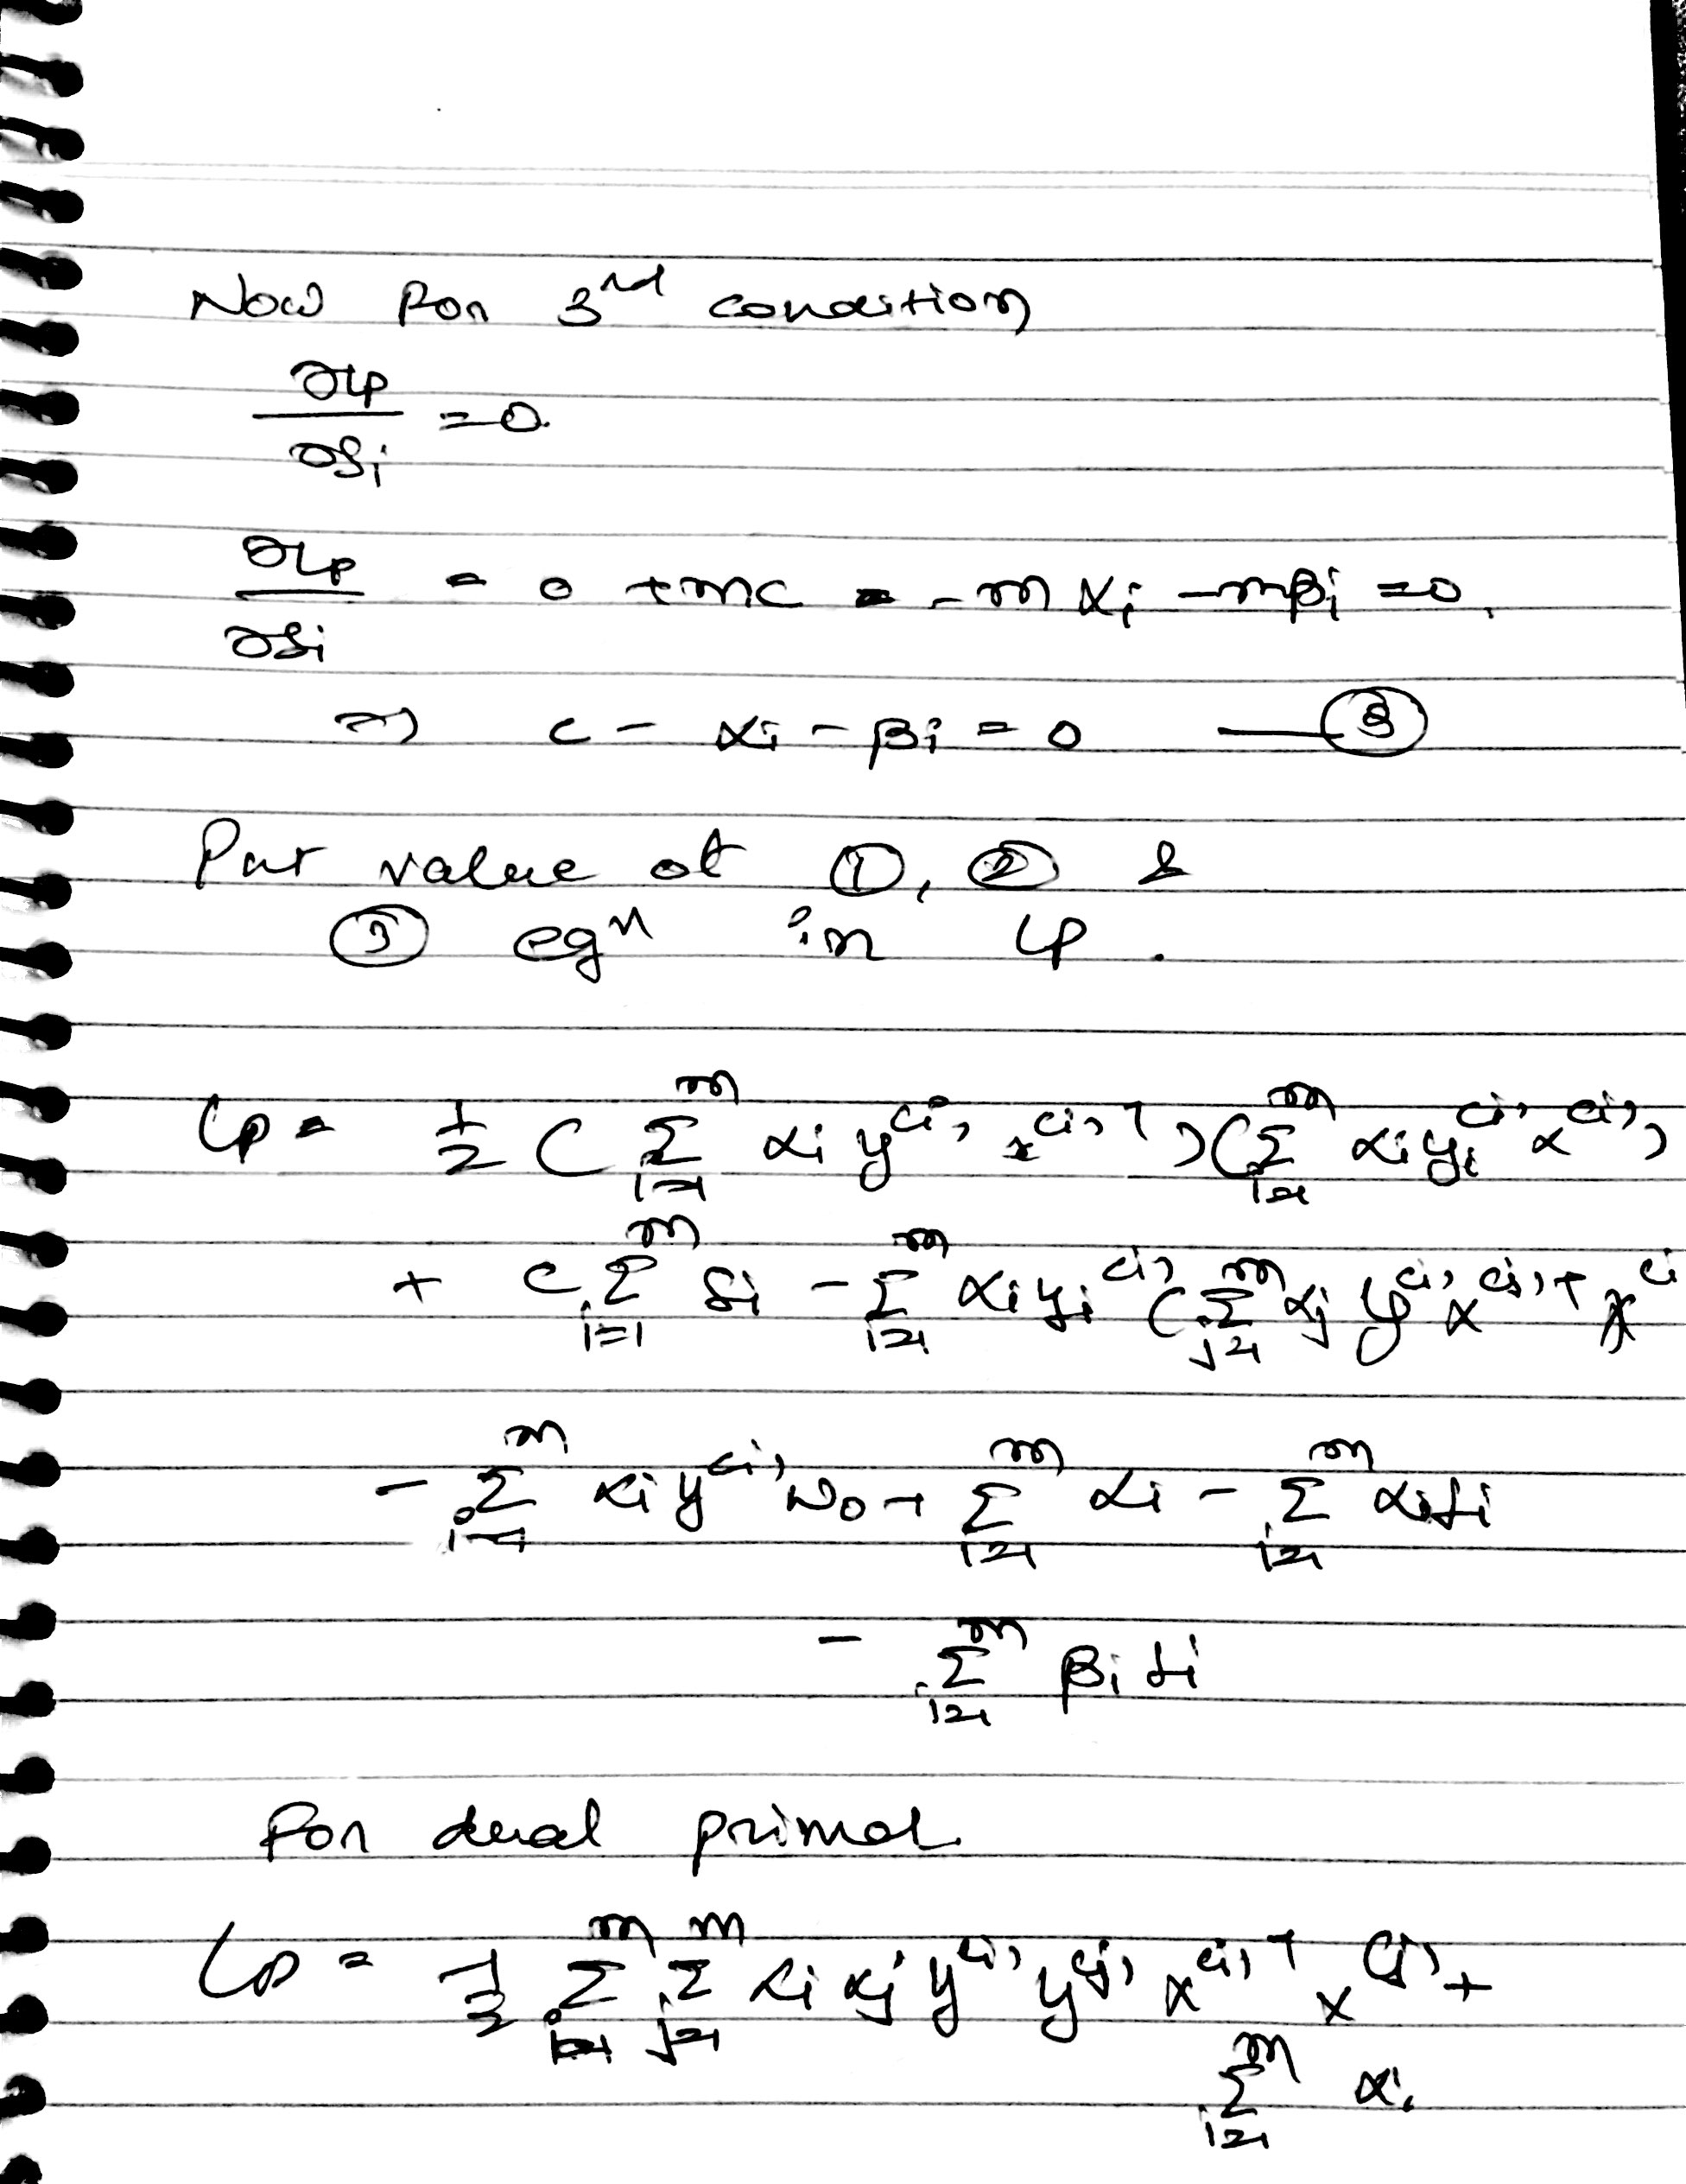 Now for 3rd condition
∂Lp
/ ∂δi = 0.
∂Lp / ∂δi = 0 + mc = - m αi - mβi = 0,
⇒ c - αi - βi = 0 — ③
Put value of ①, ② &
③ eqn in Lp.
Lp = 1/2 ( Σ_{i=1}^{m} αi y^(i) x^(i)T ) ( Σ_{i=1}^{m} αi yi^(i) x^(i) )
+ c Σ_{i=1}^{m} δi - Σ_{i=1}^{m} αi yi^(i) ( Σ_{j=1}^{m} αj y^(j) x^(j)T x^(i
- Σ_{i=1}^{m} αi y^(i) w0 + Σ_{i=1}^{m} αi - Σ_{i=1}^{m} αi δi
- Σ_{i=1}^{m} βi δi
for dual primal
LD = -1/2 Σ_{i=1}^{m} Σ_{j=1}^{m} αi αj y^(i) y^(j) x^(i)T x^(j) +
Σ_{i=1}^{m} αi